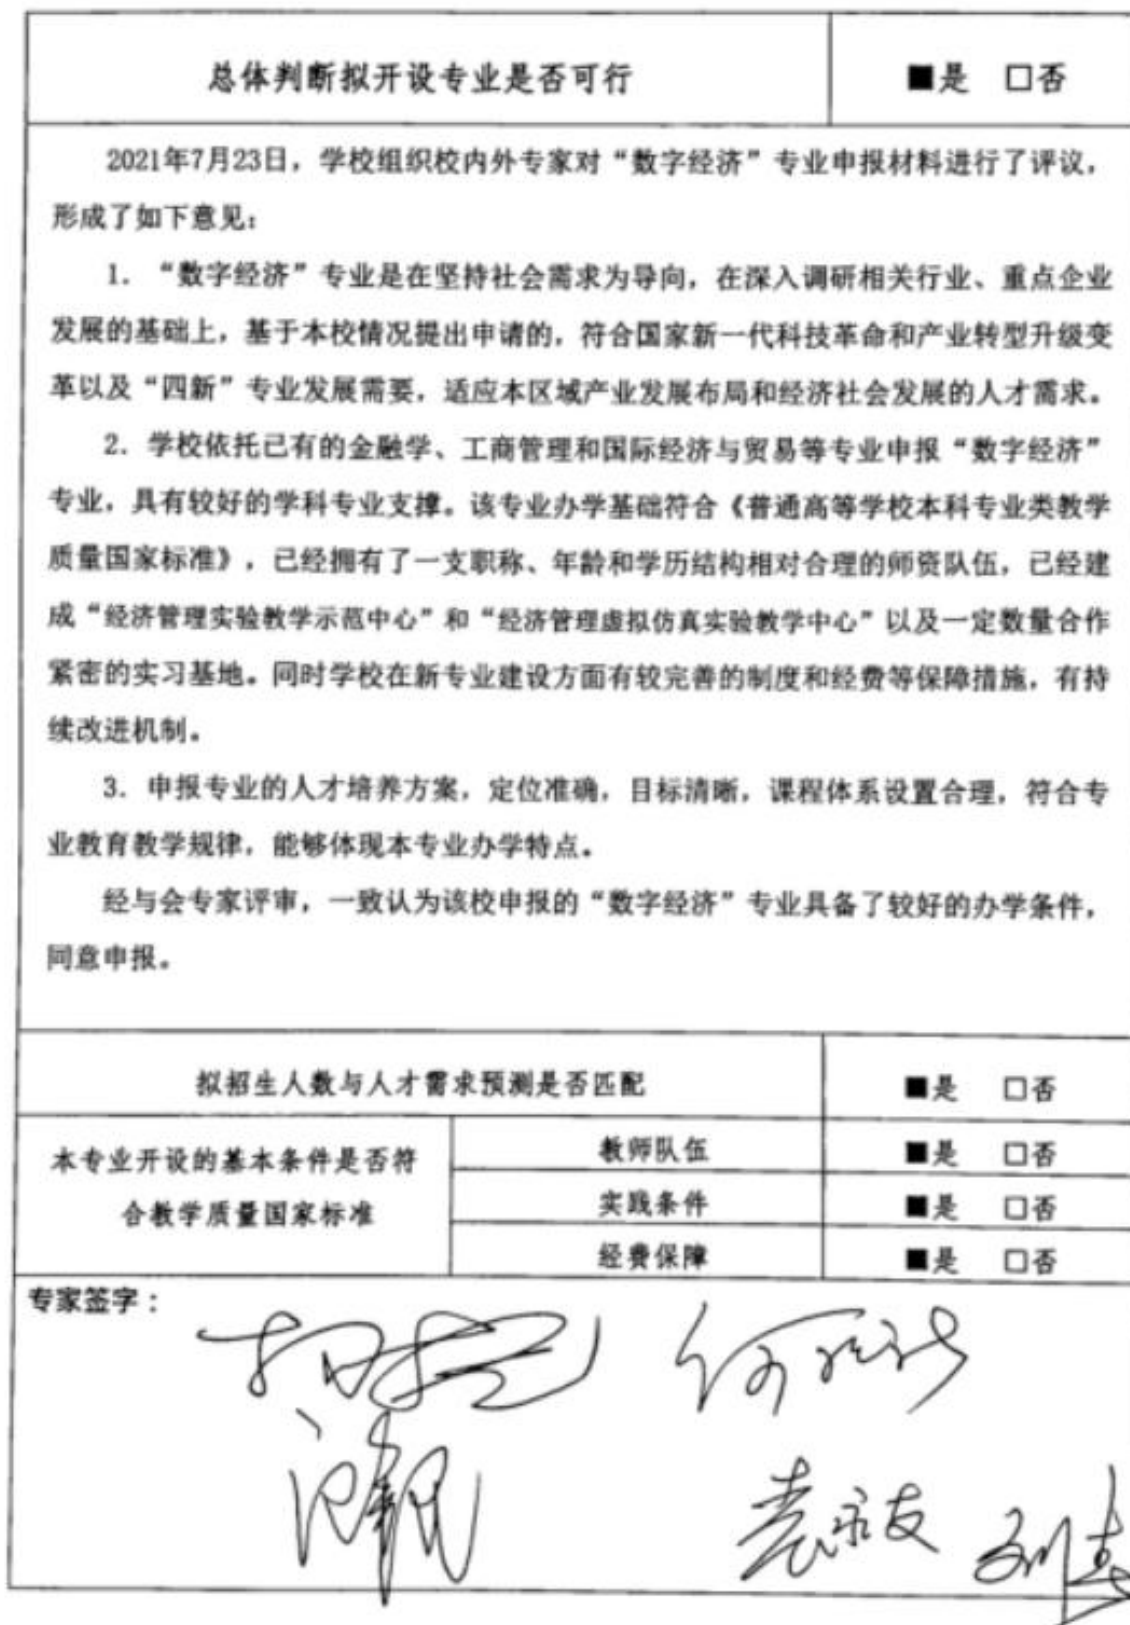 总体判断拟开设专业是否可行 ■是 □否
2021年7月23日，学校组织校内外专家对“数字经济”专业申报材料进行了评议，
形成了如下意见：
1. “数字经济”专业是在坚持社会需求为导向，在深入调研相关行业、重点企业
发展的基础上，基于本校情况提出申请的，符合国家新一代科技革命和产业转型升级变
革以及“四新”专业发展需要，适应本区域产业发展布局和经济社会发展的人才需求。
2. 学校依托已有的金融学、工商管理和国际经济与贸易等专业申报“数字经济”
专业，具有较好的学科专业支撑。该专业办学基础符合《普通高等学校本科专业类教学
质量国家标准》，已经拥有了一支职称、年龄和学历结构相对合理的师资队伍，已经建
成“经济管理实验教学示范中心”和“经济管理虚拟仿真实验教学中心”以及一定数量合作
紧密的实习基地。同时学校在新专业建设方面有较完善的制度和经费等保障措施，有持
续改进机制。
3. 申报专业的人才培养方案，定位准确，目标清晰，课程体系设置合理，符合专
业教育教学规律，能够体现本专业办学特点。
经与会专家评审，一致认为该校申报的“数字经济”专业具备了较好的办学条件，
同意申报。
拟招生人数与人才需求预测是否匹配 ■是 □否
本专业开设的基本条件是否符
合教学质量国家标准
教师队伍 ■是 □否
实践条件 ■是 □否
经费保障 ■是 □否
专家签字：
袁永友